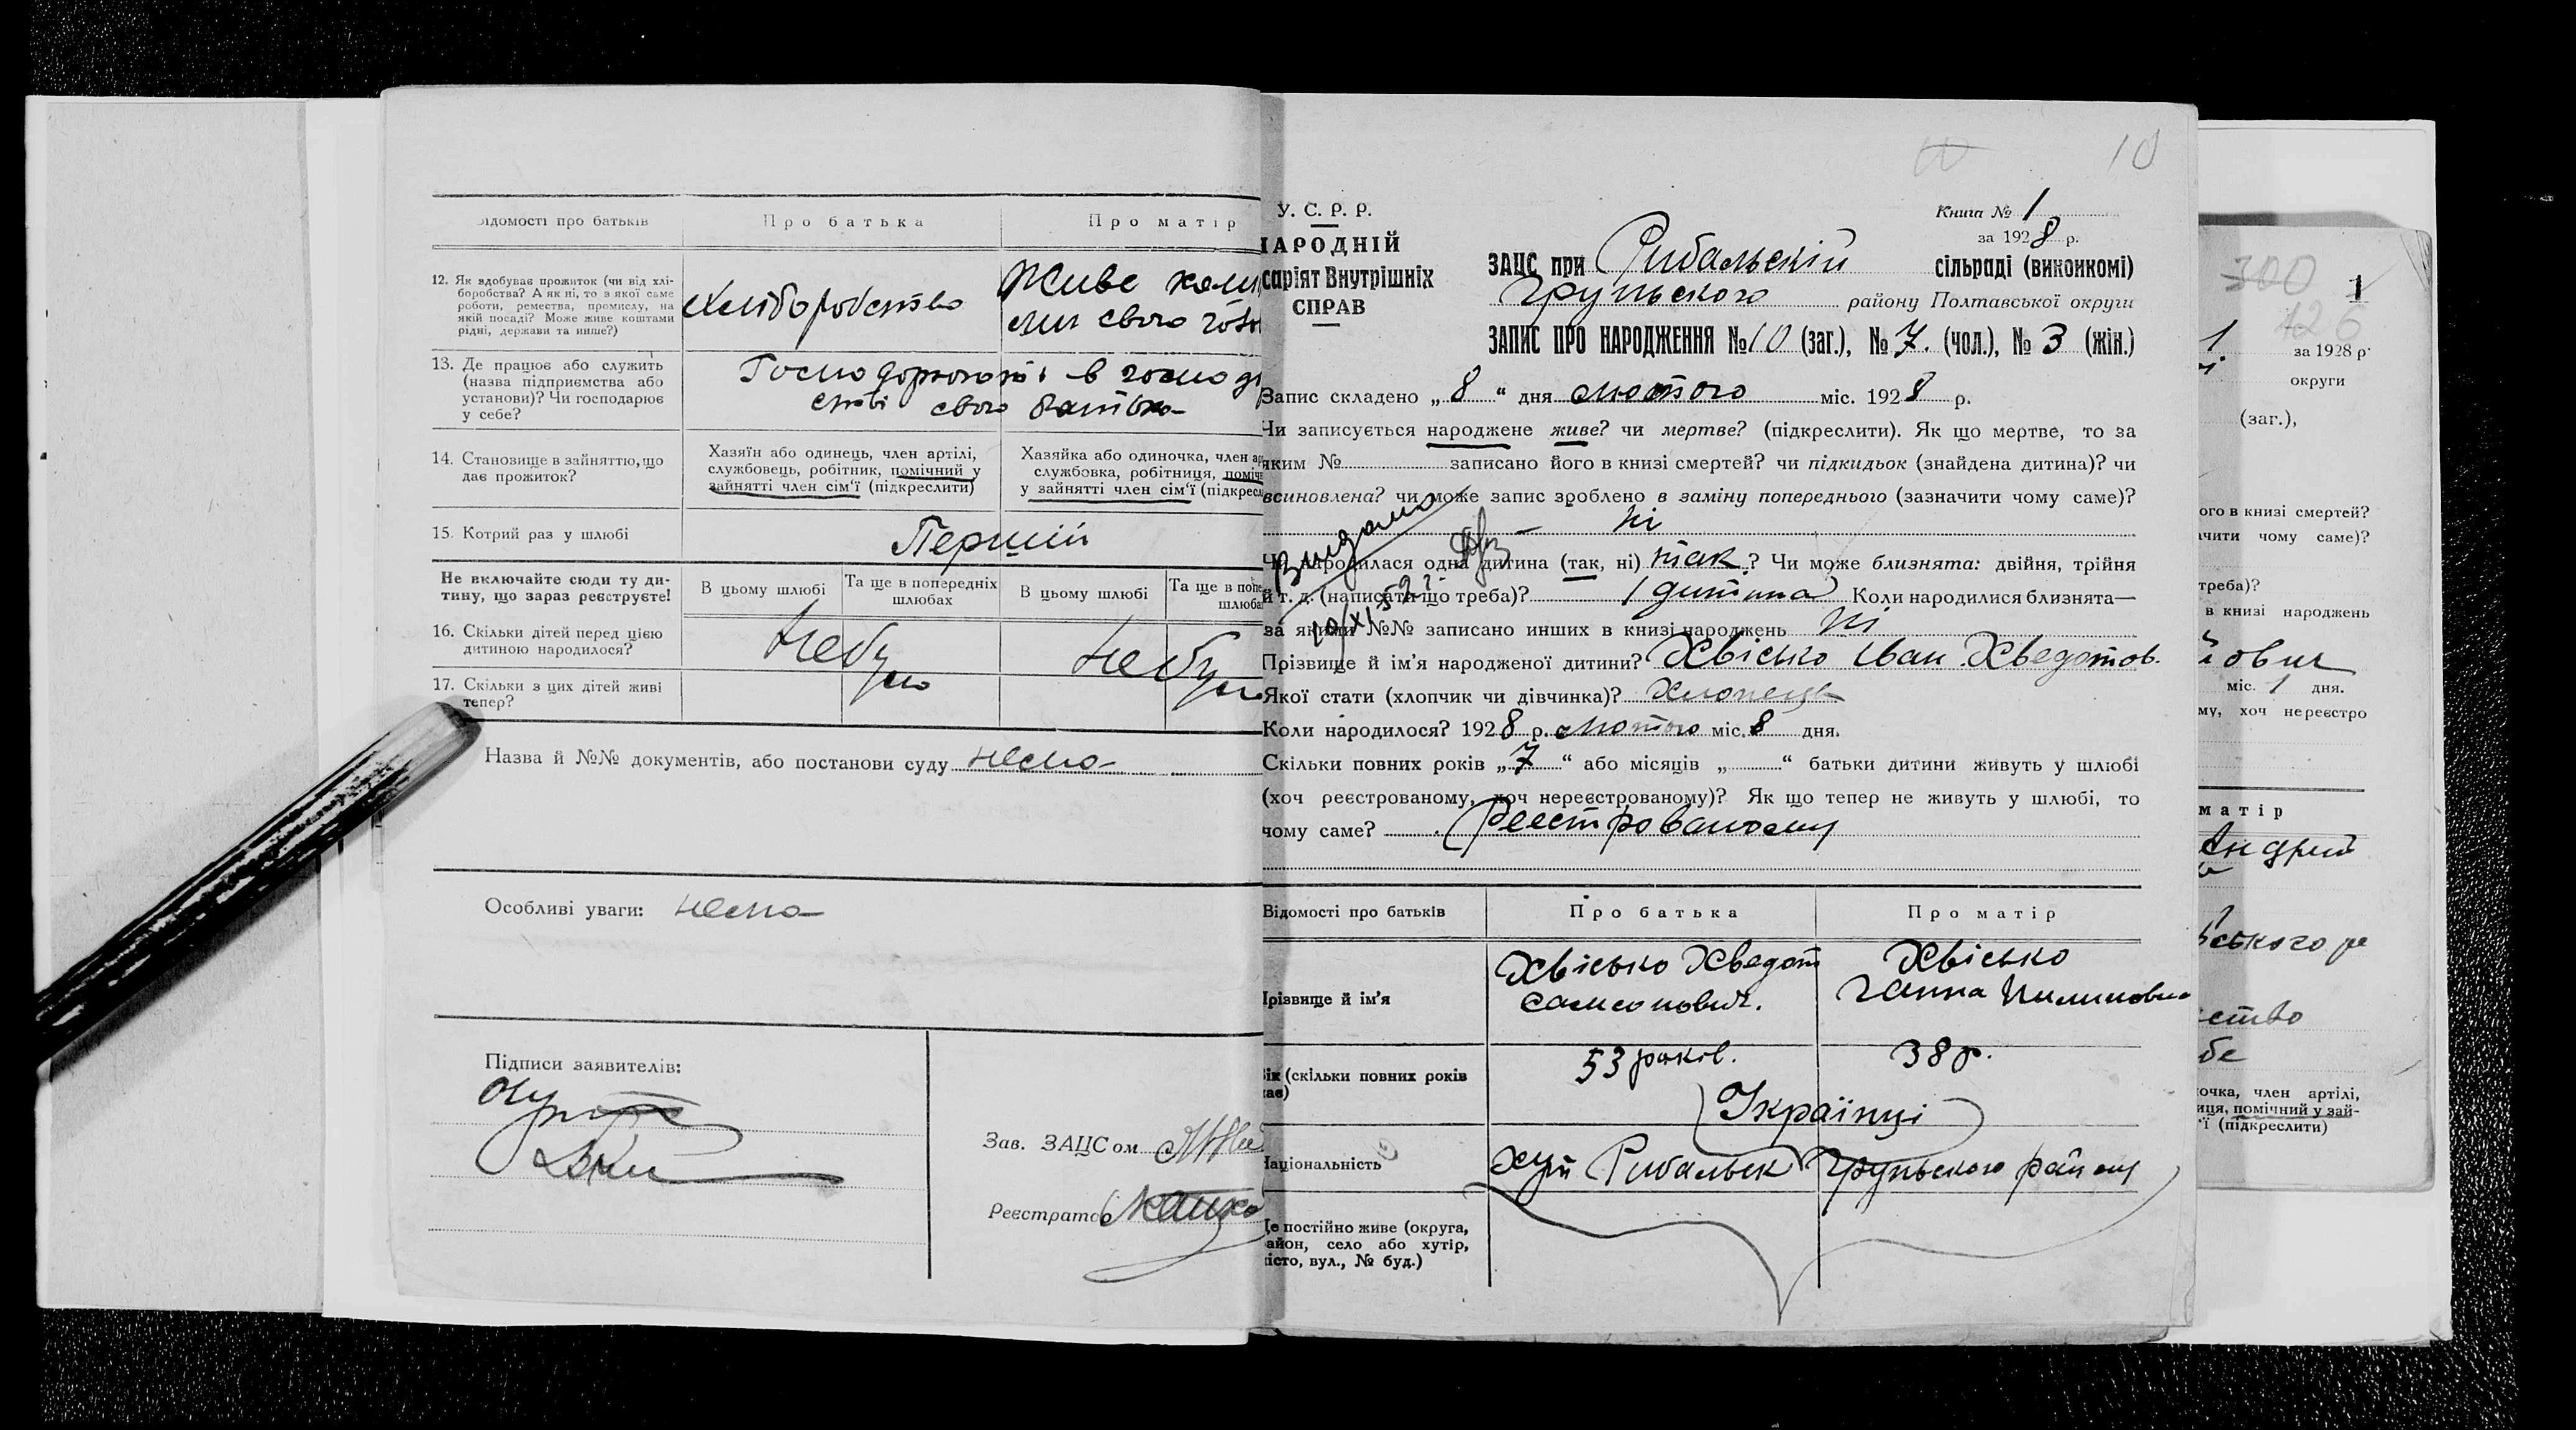 Відомості про батьків
Про батька
Про матір
12. Як здобуває прожиток (чи від хлі-
боробства? А як ні, то з якої саме
роботи, ремества, промислу, на
якій посаді? Може живе коштами
рідні, держави та инше?)
Хліборобство
Живе
свого
13. Де працює або служить
(назва підприємства або
установи)? Чи господарює
у себе?
в
свого батька
14. Становище в зайняттю, що
дає прожиток?
Хазяїн або одинець, член артілі,
службовець, робітник, помічний у
зайнятті член сім'ї (підкреслити)
Хазяйка або одиночка, член ар
службовка, робітниця, поміч
у зайнятті член сім'ї (підкресл
15. Котрий раз у шлюбі
Перший
Не включайте сюди ту ди-
тину, що зараз реєструєте!
В цьому шлюбі
Та ще в попередніх
шлюбах
В цьому шлюбі
Та ще в попе
шлюба
16. Скільки дітей перед цією
дитиною народилося?
Небуло
Небуло
17. Скільки з цих дітей живі
тепер?
Назва й №№ документів, або постанови суду нема
Особливі уваги: нема
Підписи заявителів:
Зав. ЗАЦСом
Реєстратор
10
У. С. Р. Р.
НАРОДНІЙ
саріят Внутрішніх
СПРАВ
Книга № 1
за 1928 р.
ЗАЦС при Рибальскій сільраді (виконкомі)
Груньского району Полтавської округи
ЗАПИС ПРО НАРОДЖЕННЯ № 10 (заг.), № 7. (чол.), № 3 (жін.)
Запис складено „ 8 “ дня лютого міс. 1928 р.
Чи записується народжене живе? чи мертве? (підкреслити). Як що мертве, то за
яким № записано його в книзі смертей? чи підкидьок (знайдена дитина)? чи
всиновлена? чи може запис зроблено в заміну попереднього (зазначити чому саме)?
ні
Чи народилася одна дитина (так, ні) так? Чи може близнята: двійня, трійня
й т. д. (написати що треба)? 1 дитина Коли народилися близнята—
за якими №№ записано инших в книзі народжень ні
Прізвище й ім'я народженої дитини? Хвісько Іван Хведотов.
Якої стати (хлопчик чи дівчинка)? Хлопець
Коли народилося? 1928 р. лютого міс. 8 дня.
Скільки повних років „ 7 “ або місяців „ “ батьки дитини живуть у шлюбі
(хоч реєстрованому, хоч нереєстрованому)? Як що тепер не живуть у шлюбі, то
чому саме? Реестрованому
Відомості про батьків
Про батька
Про матір
Прізвище й ім'я
Хвісько Хведот
Самсонович.
Хвісько
Ганна Пилиповна
Вік (скільки повних років
має)
53 років.
38 р.
Українці
Національність
хут Рибальск Груньского району
Де постійно живе (округа,
район, село або хутір,
місто, вул., № буд.)
300
1
426
1
за 1928 р.
округи
(заг.),
ого в книзі смертей?
ачити чому саме)?
треба)?
в книзі народжень
міс. 1 дня.
му, хоч нереєстро
матір
ського
ство
бе
очка, член артілі,
иця, помічний у зай-
'ї (підкреслити)